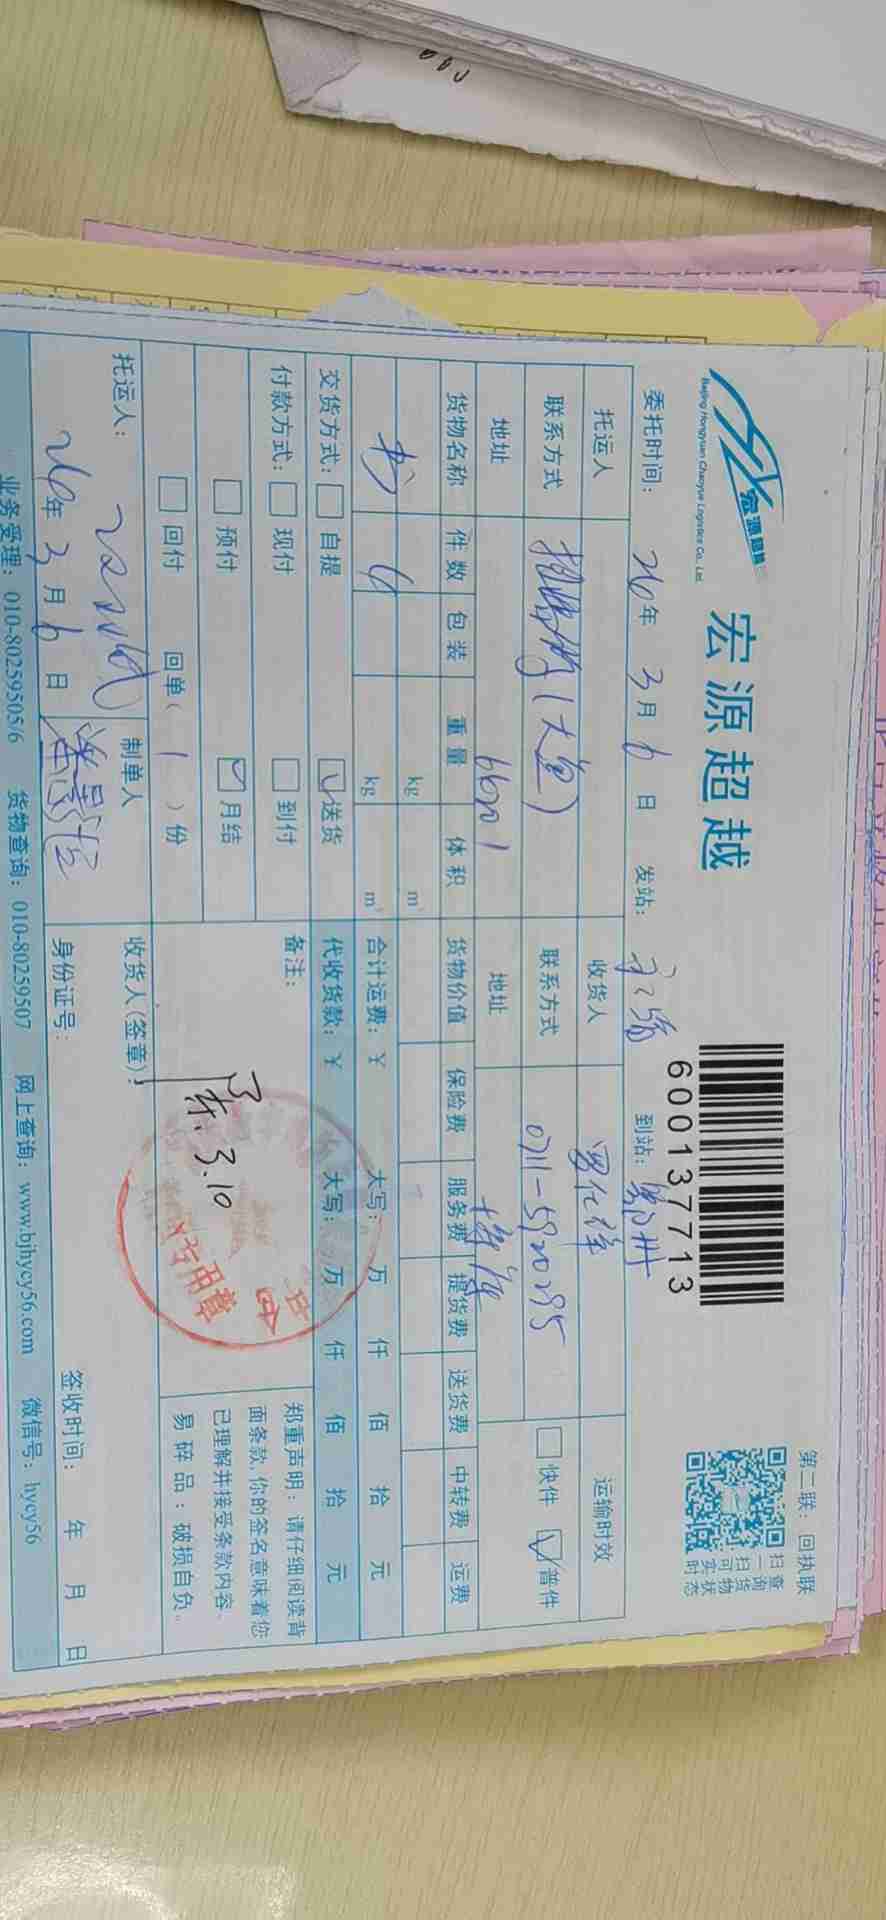 第二联：回执联
宏源超越
宏源超越
Beijing Hongyuan Chaoyue Logistics Co., Ltd.
600137713
扫查
一询
扫货
可物
实状
时态
委托时间： 26年 3月 6日 发站： 到站：
托运人 收货人 运输时效
联系方式 联系方式 0711-5920295 快件 普件
地址 地址
货物名称 件数 包装 重量 体积 货物价值 保险费 服务费 提货费 送货费 中转费 运费
kg m³
书 kg m³ 合计运费：¥ 大写： 万 仟 佰 拾 元
交货方式： 自提 送货 代收货款：¥ 大写： 万 仟 佰 拾 元
付款方式： 现付 到付 备注：
预付 月结
回付 回单（ 1 ）份
3.10
专用章
郑重声明：请仔细阅读背
面条款,你的签名意味着您
已理解并接受条款内容。
易碎品：破损自负。
托运人： 制单人 收货人(签章)：
26年 3月 6日 身份证号： 签收时间： 年 月 日
业务受理：010-80259505/6 货物查询：010-80259507 网上查询：www.bjhycy56.com 微信号：hycy56